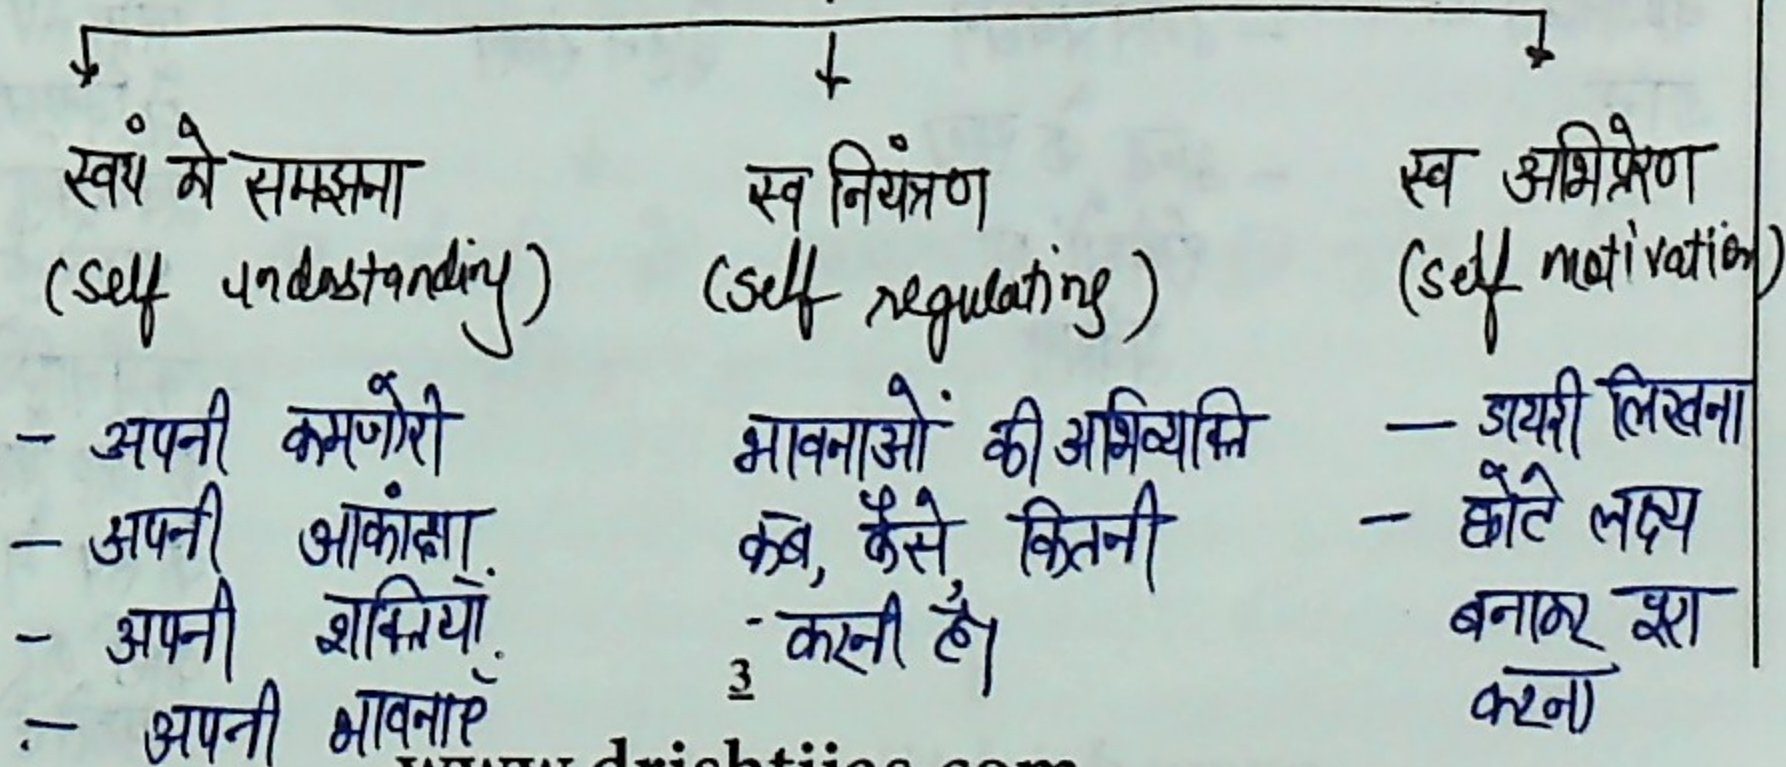 स्वयं को समझना
(self understanding)
- अपनी कमजोरी
- अपनी आकांक्षा
- अपनी शक्तियाँ
- अपनी भावनाएँ
स्व नियंत्रण
(self regulating)
भावनाओं की अभिव्यक्ति
कब, कैसे, कितनी
- करनी है।
स्व अभिप्रेरण
(self motivation)
- डायरी लिखना
- छोटे लक्ष्य
बनाकर पूरा
करना
3
www.drishtiias.com